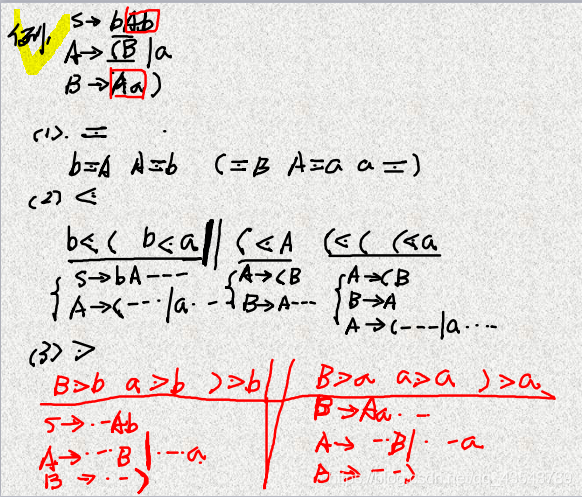 例1, S→bAb
A→(B|a
B→Aa)
(1). ≐
b≐A A≐b (≐B A≐a a≐)
(2) ⋖
b⋖( b⋖a (⋖A (⋖( (⋖a
S→bA--- A→(B A→(B
A→(---|a--- B→A--- B→A
A→(---|a---
(3) ⋗
B⋗b a⋗b )⋗b B⋗a a⋗a )⋗a
S→--Ab B→Aa--
A→--B|---a A→--B|--a
B→--) B→--)